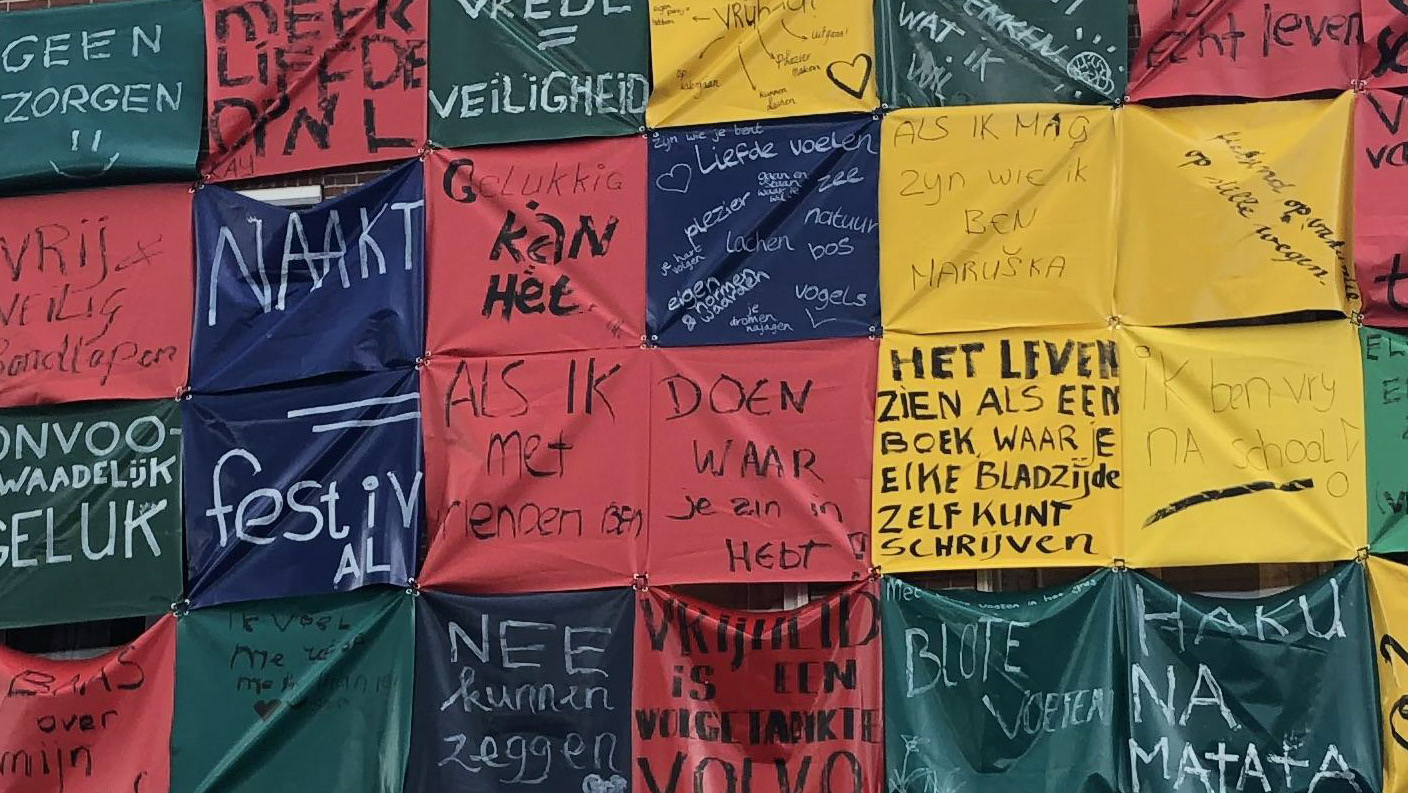 GEEN
ZORGEN
!!
MEER
LIEFDE
VREDE
=
VEILIGHEID
VRIJHEID!
uitgaan!
Plezier
maken
kunnen
WAT IK
WIL
echt leven
VRIJ &
VEILIG
NAAKT
GeLukkig
KAN
Het.
zijn wie je bent
Liefde voelen
gaan en
staan
waar je
wil
zee
plezier
natuur
je hart
volgen
lachen
bos
eigen
normen
& waarden
vogels
je
dromen
najagen
ALS IK MAG
Zijn wie ik
BEN
MARUŠKA
fietsend op vakantie
op stille wegen.
ONVOO-
WAADELIJK
GELUK
festiV
AL
ALS IK
met
vrienden BEN
DOEN
WAAR
je zin in
HEbT !
HET LEVEN
ZIEN ALS EEN
BOEK WAAR JE
ElKE BLADZijde
ZELF KUNT
SCHRIJVEN
iK ben vry
NA school!
BAAS
over
mijn
Ik VOEL
me
NEE
kunnen
zeggen
VRIJHEID
iS EEN
VOLGETANKTE
VOLVO
Met
voeten in het gras
BLOTE
VOETEN
HAKU
NA
MATATA